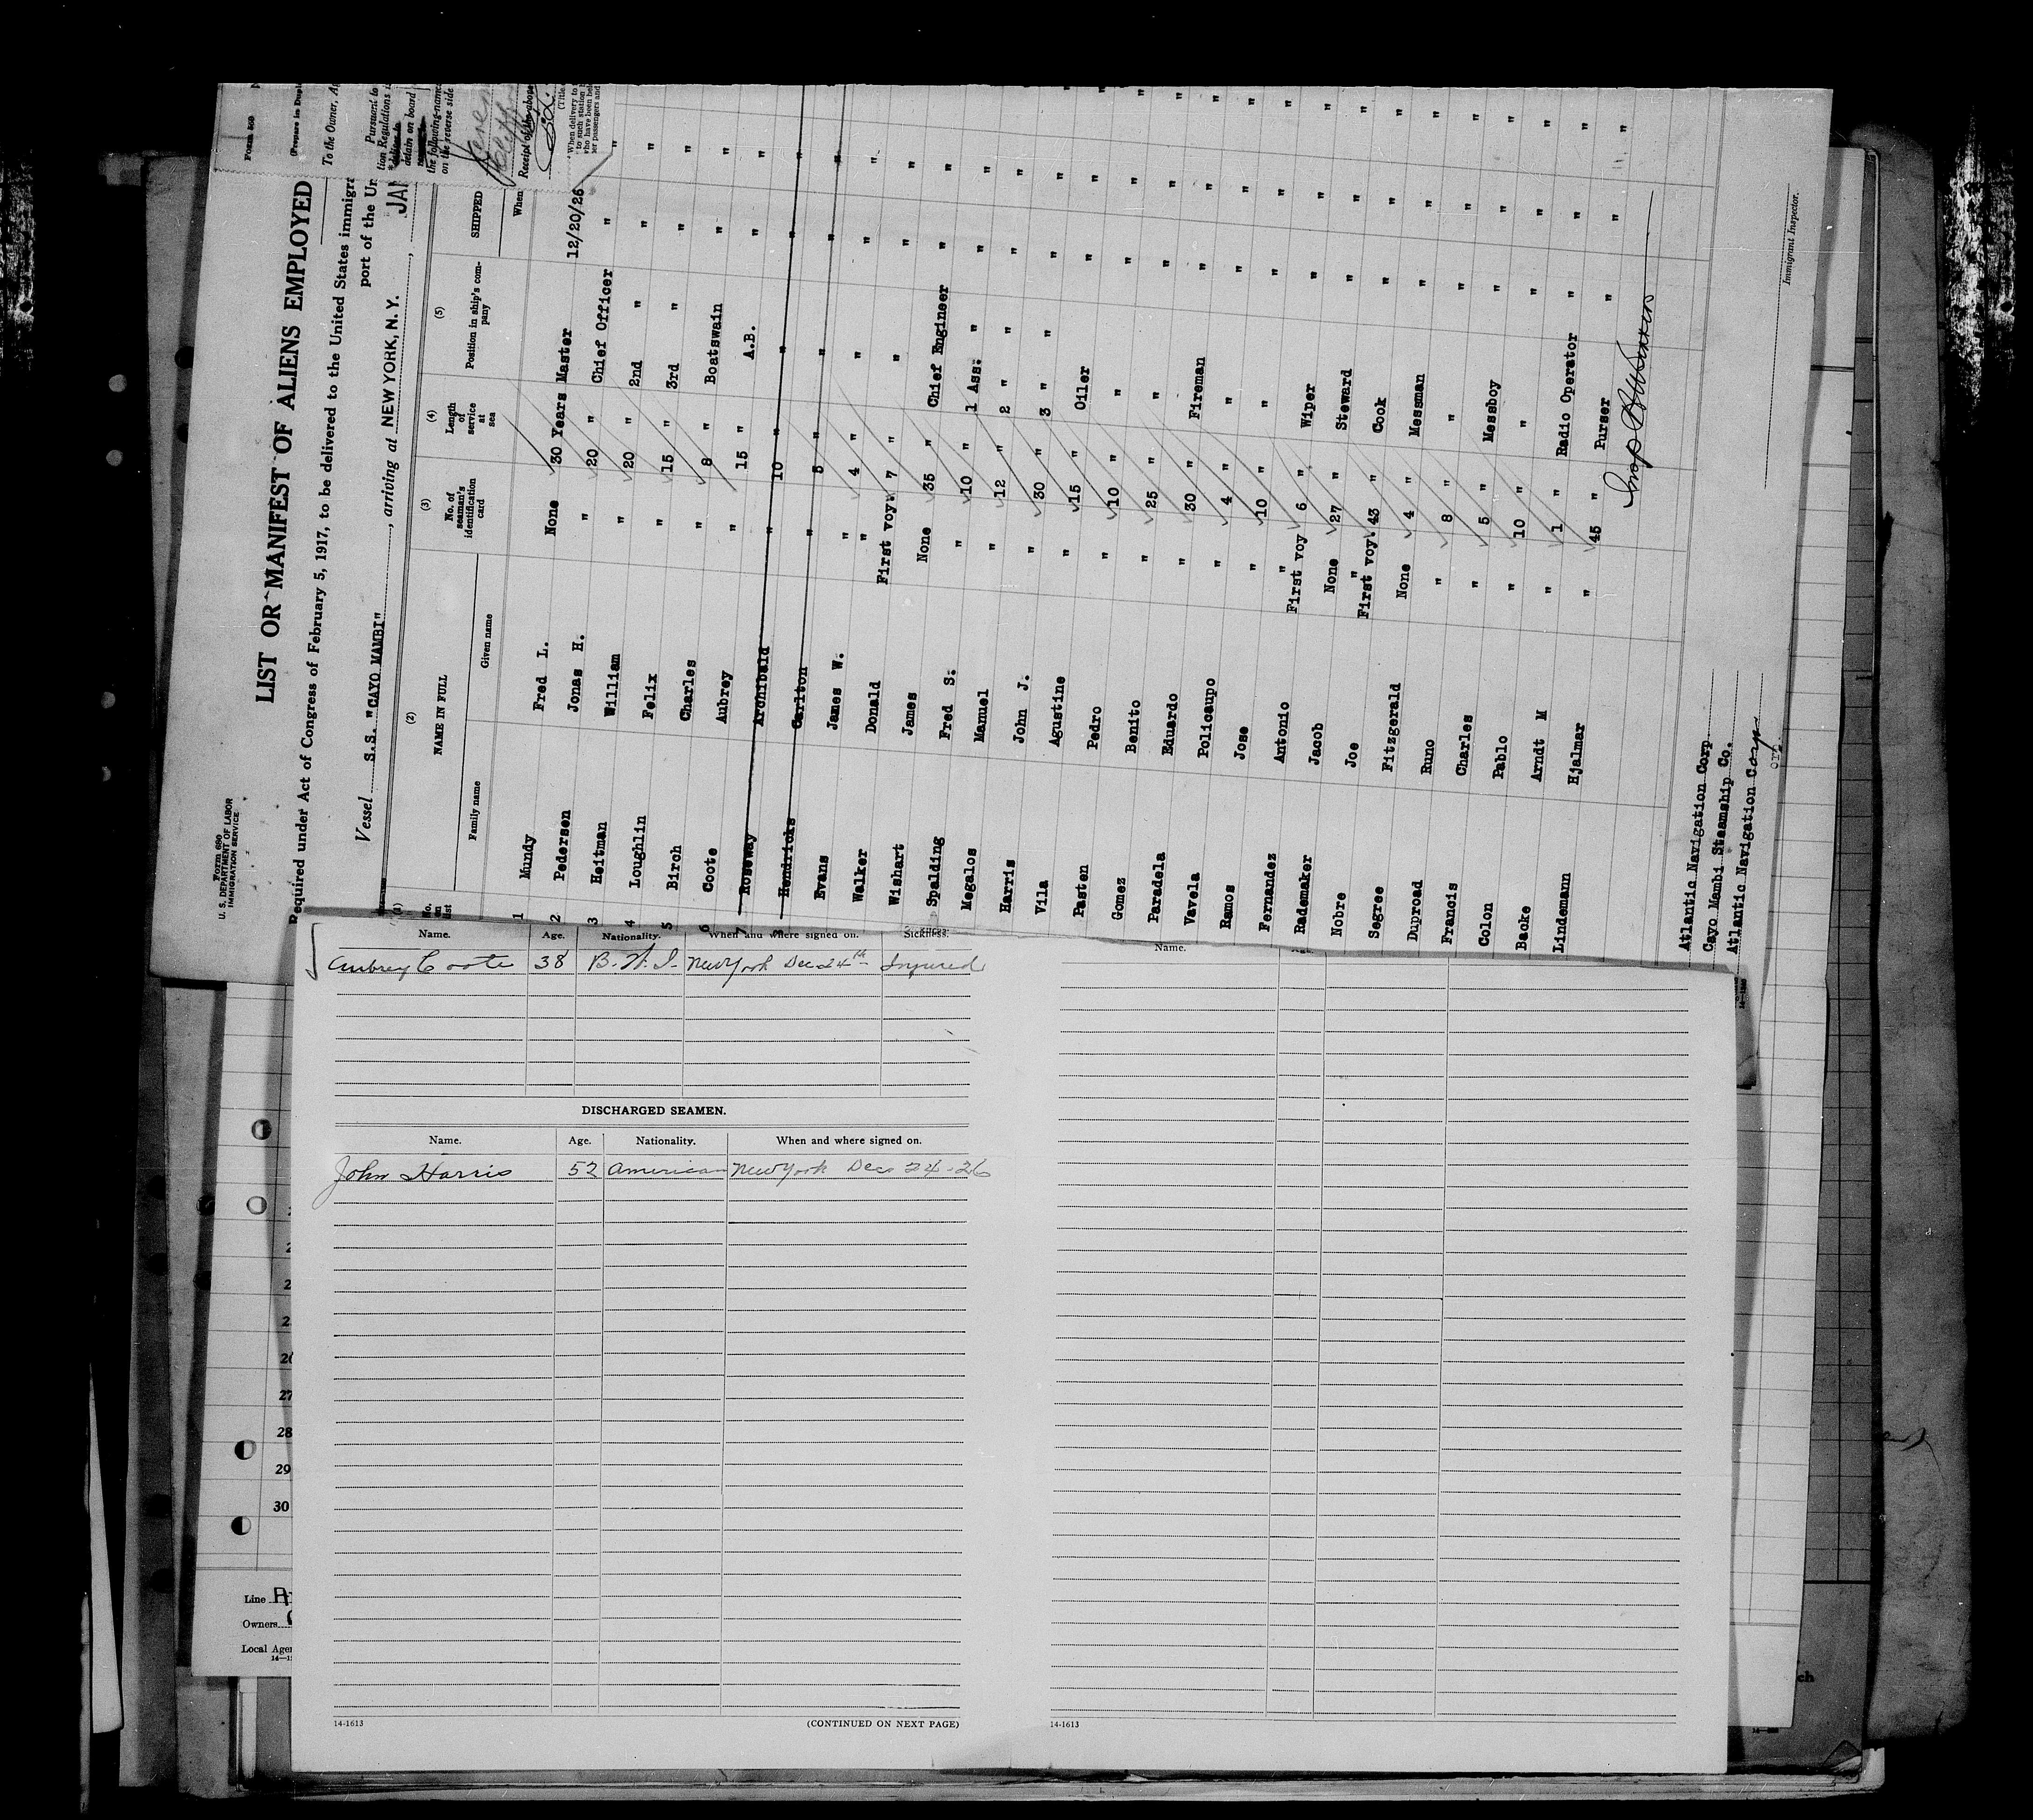 Form 680
U. S. DEPARTMENT OF LABOR
IMMIGRATION SERVICE
LIST OR MANIFEST OF ALIENS EMPLOYED
Required under Act of Congress of February 5, 1917, to be delivered to the United States immigra
port of the Un
Vessel S.S. "CAYO MAMBI", arriving at NEW YORK, N. Y., JAN
(1) (2) (3) (4) (5)
No. on list NAME IN FULL No. of seaman's identification card Length of service at sea Position in ship's company SHIPPED
Family name Given name When
1 Mundy Fred L. None 30 Years Master 12/20/26 "
2 Pedersen Jonas H. " 20 " Chief Officer " "
3 Heitman William " 20 " 2nd " " "
4 Loughlin Felix " 15 " 3rd " " "
5 Birch Charles " 8 " Boatswain " "
6 Coote Aubrey " 15 " A.B. " "
7 Roseway Archibald " 10 " " " "
8 Hendricks Carlton " 5 " " " "
Evans James W. " 4 " " " "
Walker Donald " 7 " " " "
Wishart James First voy 35 " Chief Engineer " "
Spalding Fred S. None 10 " 1 Ass. " " "
Megalos Manuel " 12 " 2 " " " "
Harris John J. " 30 " 3 " " " "
Vila Agustine " 15 " Oiler " "
Pasten Pedro " 10 " " " "
Gomez Benito " 25 " " " "
Paradela Eduardo " 30 " Fireman " "
Vavela Policaupo " 4 " " " "
Ramos Jose " 10 " " " "
Fernandez Antonio " 6 " Wiper " "
Rademaker Jacob First voy 27 " Steward " "
Nobre Joe None 43 " Cook " "
Segree Fitzgerald First voy. 4 " Messman " "
Duproad Runo None 8 " " " "
Francis Charles " 5 " Messboy " "
Colon Pablo " 10 " " " "
Backe Arndt M " 1 " Radio Operator " "
Lindemann Hjalmar " 45 " Purser " "
Atlantic Navigation Corp
Cayo Mambi Steamship Co.
Atlantic Navigation Corp
Immigrant Inspector.
Form
(Prepare in Dupl
To the Owner, Ag
Pursuant to
tion Regulations
detain on board
the following-name
on the reverse side
Receipt of the above
(Title
When delivery to
to such station
who have been
ter passengers and
Name. Age. Nationality. When and where signed on. Sickness.
Aubrey Coote 38 B. W. I. New York Dec 24th Injured
DISCHARGED SEAMEN.
Name. Age. Nationality. When and where signed on.
John Harris 52 American New York Dec 24-26
14-1613 (CONTINUED ON NEXT PAGE)
Name.
14-1613
27
28
29
30
Line
Owners
Local Agen